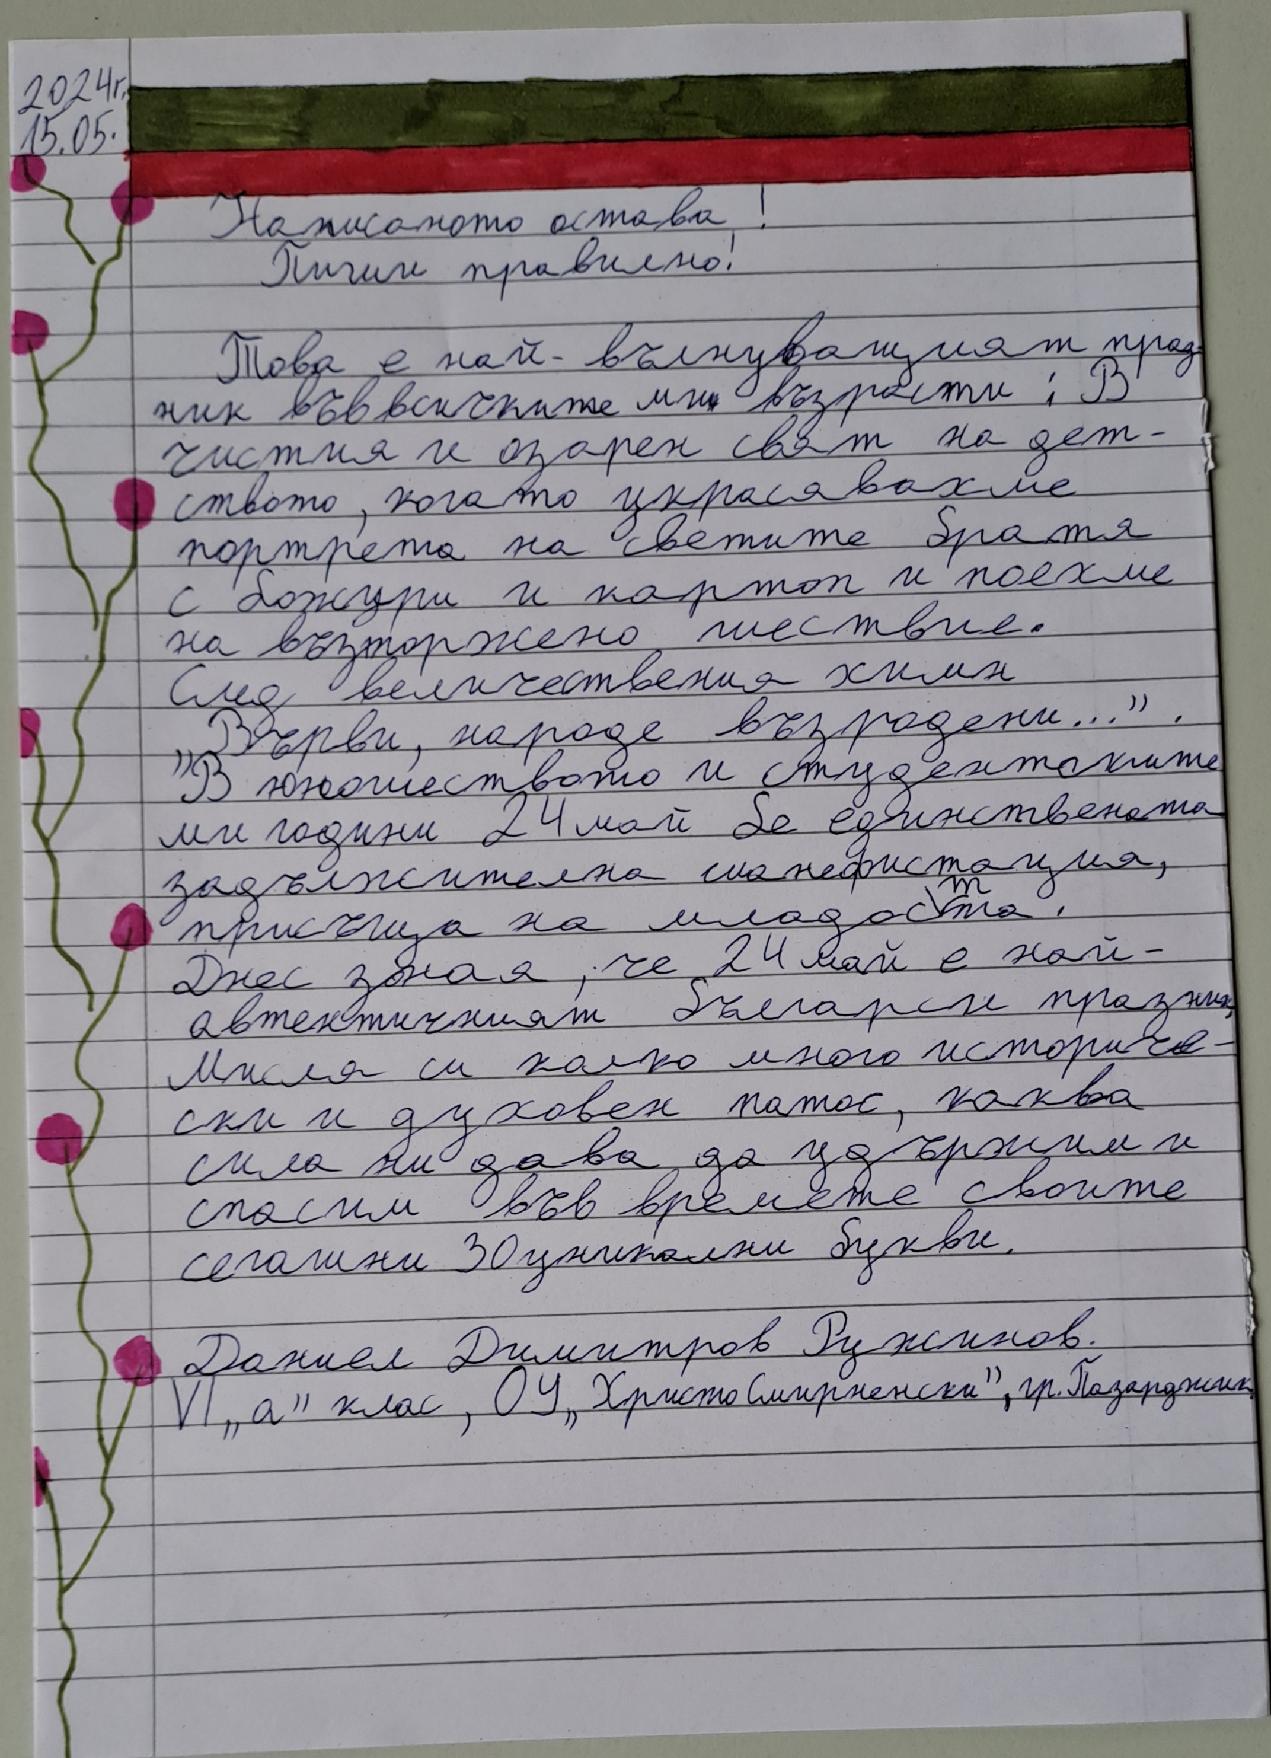 2024г.
15.05.
Написаното остава!
Пиши правилно!
Това е най-вълнуващият праз-
ник във всичките ми възрасти: В
чистия и озарен свят на дет-
ството, когато украсявахме
портрета на светите братя
с божури и картоп и поехме
на възторжено шествие.
След величествения химн
„Върви, народе възродени...".
"В юношеството и студентските
ми години 24 май бе единствената
задължителна манефистация,
присъща на младостта.
Днес зная, че 24 май е най-
автентичният българси празник,
Мисля си колко много историче-
ски и духовен патос, каква
сила ни дава да удържим и
спасим във времете своите
сегашни 30 уникални букви.
Даниел Димитров Ружинов.
VI „а" клас, ОУ „Христо Смирненски", гр. Пазарджик